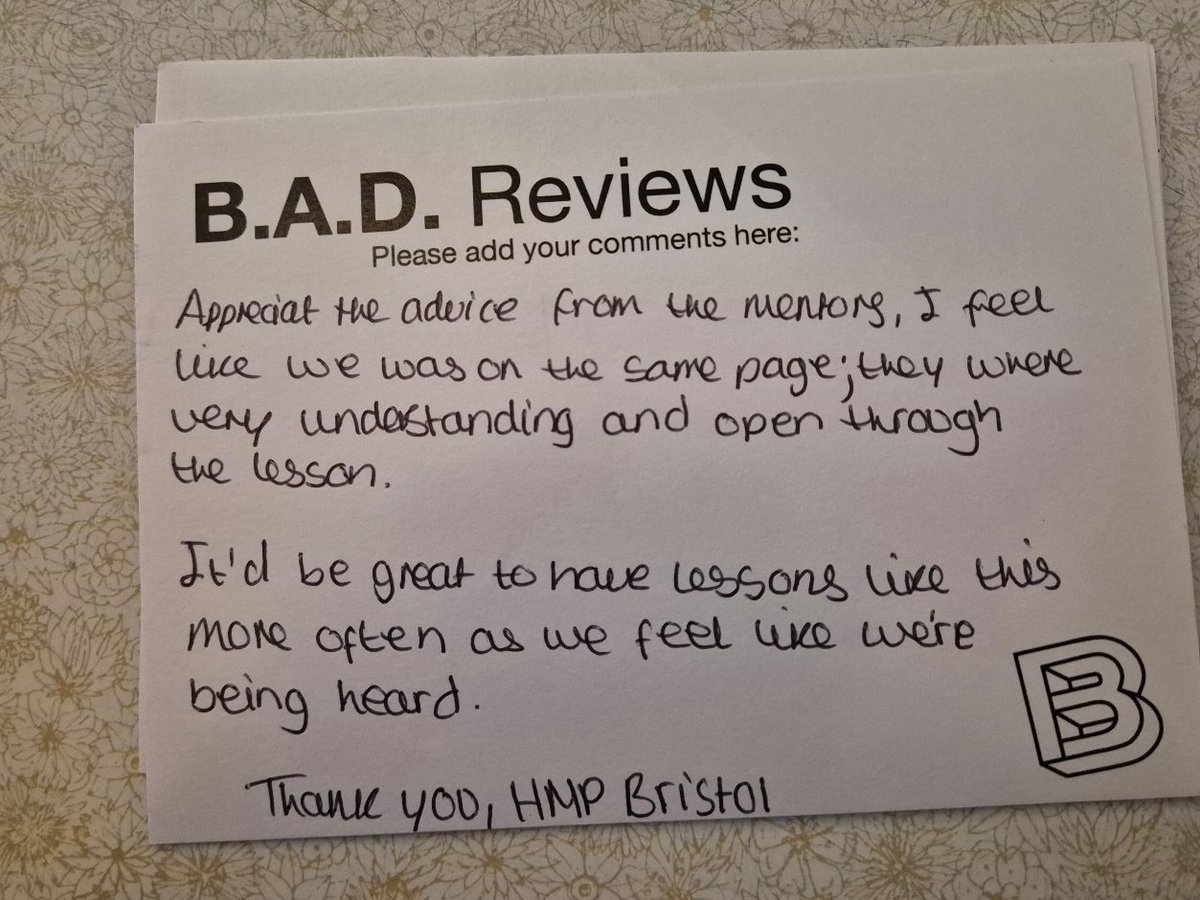 B.A.D. Reviews
Please add your comments here:
Appreciat the advice from the mentors, I feel
like we was on the same page; they where
very understanding and open through
the lesson.
It'd be great to have lessons like this
more often as we feel like we're
being heard.
B
Thank you, HMP Bristol